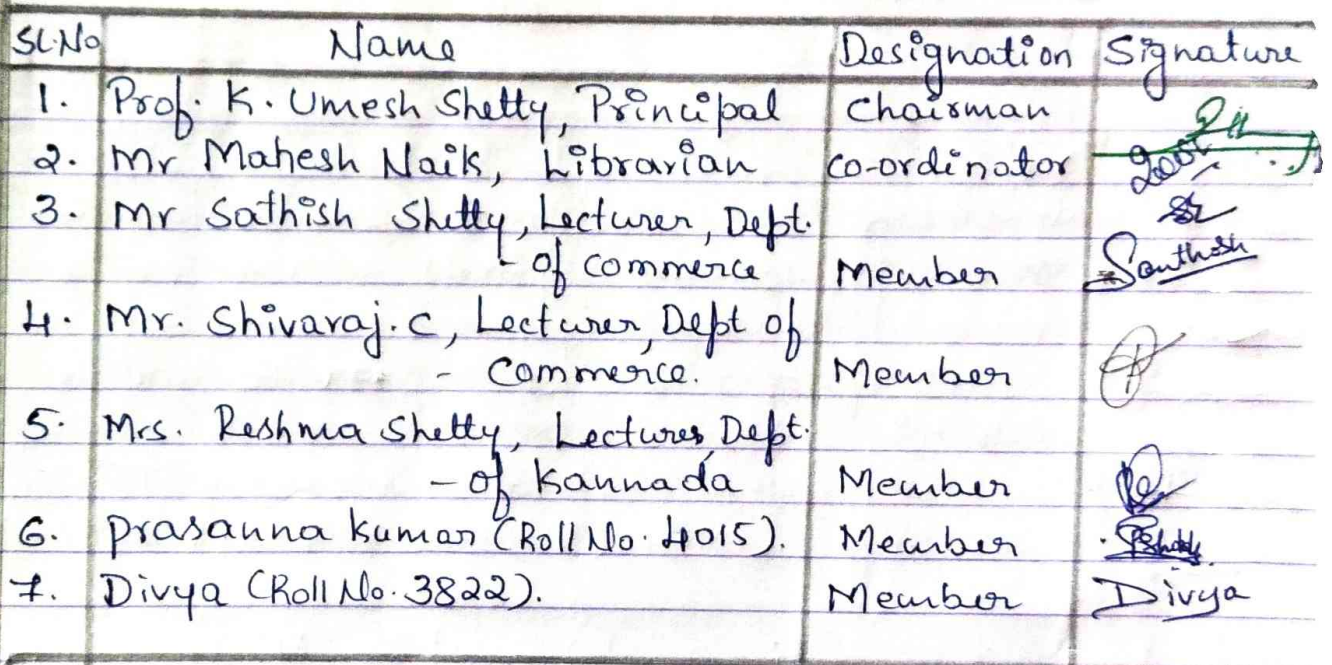 Sl.No Name Designation Signature
1. Prof. K. Umesh Shetty, Principal Chairman
2. Mr Mahesh Naik, Librarian Co-ordinator
3. Mr Sathish Shetty, Lecturer, Dept.
- of commerce Member Santhosh
4. Mr. Shivaraj.C, Lecturer, Dept of
- Commerce. Member
5. Mrs. Reshma Shetty, Lecturer, Dept.
- of Kannada Member
6. Prasanna Kumar (Roll No. 4015). Member
7. Divya (Roll No. 3822). Member Divya